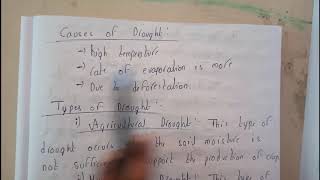 Causes of Drought:
→ high temprature
→ rate of evaporation is more
→ Due to deforestation.
Types of Drought:
i) Agricultural Drought: This type of
drought occurs the soil moisture is
not suffici support the production of crop